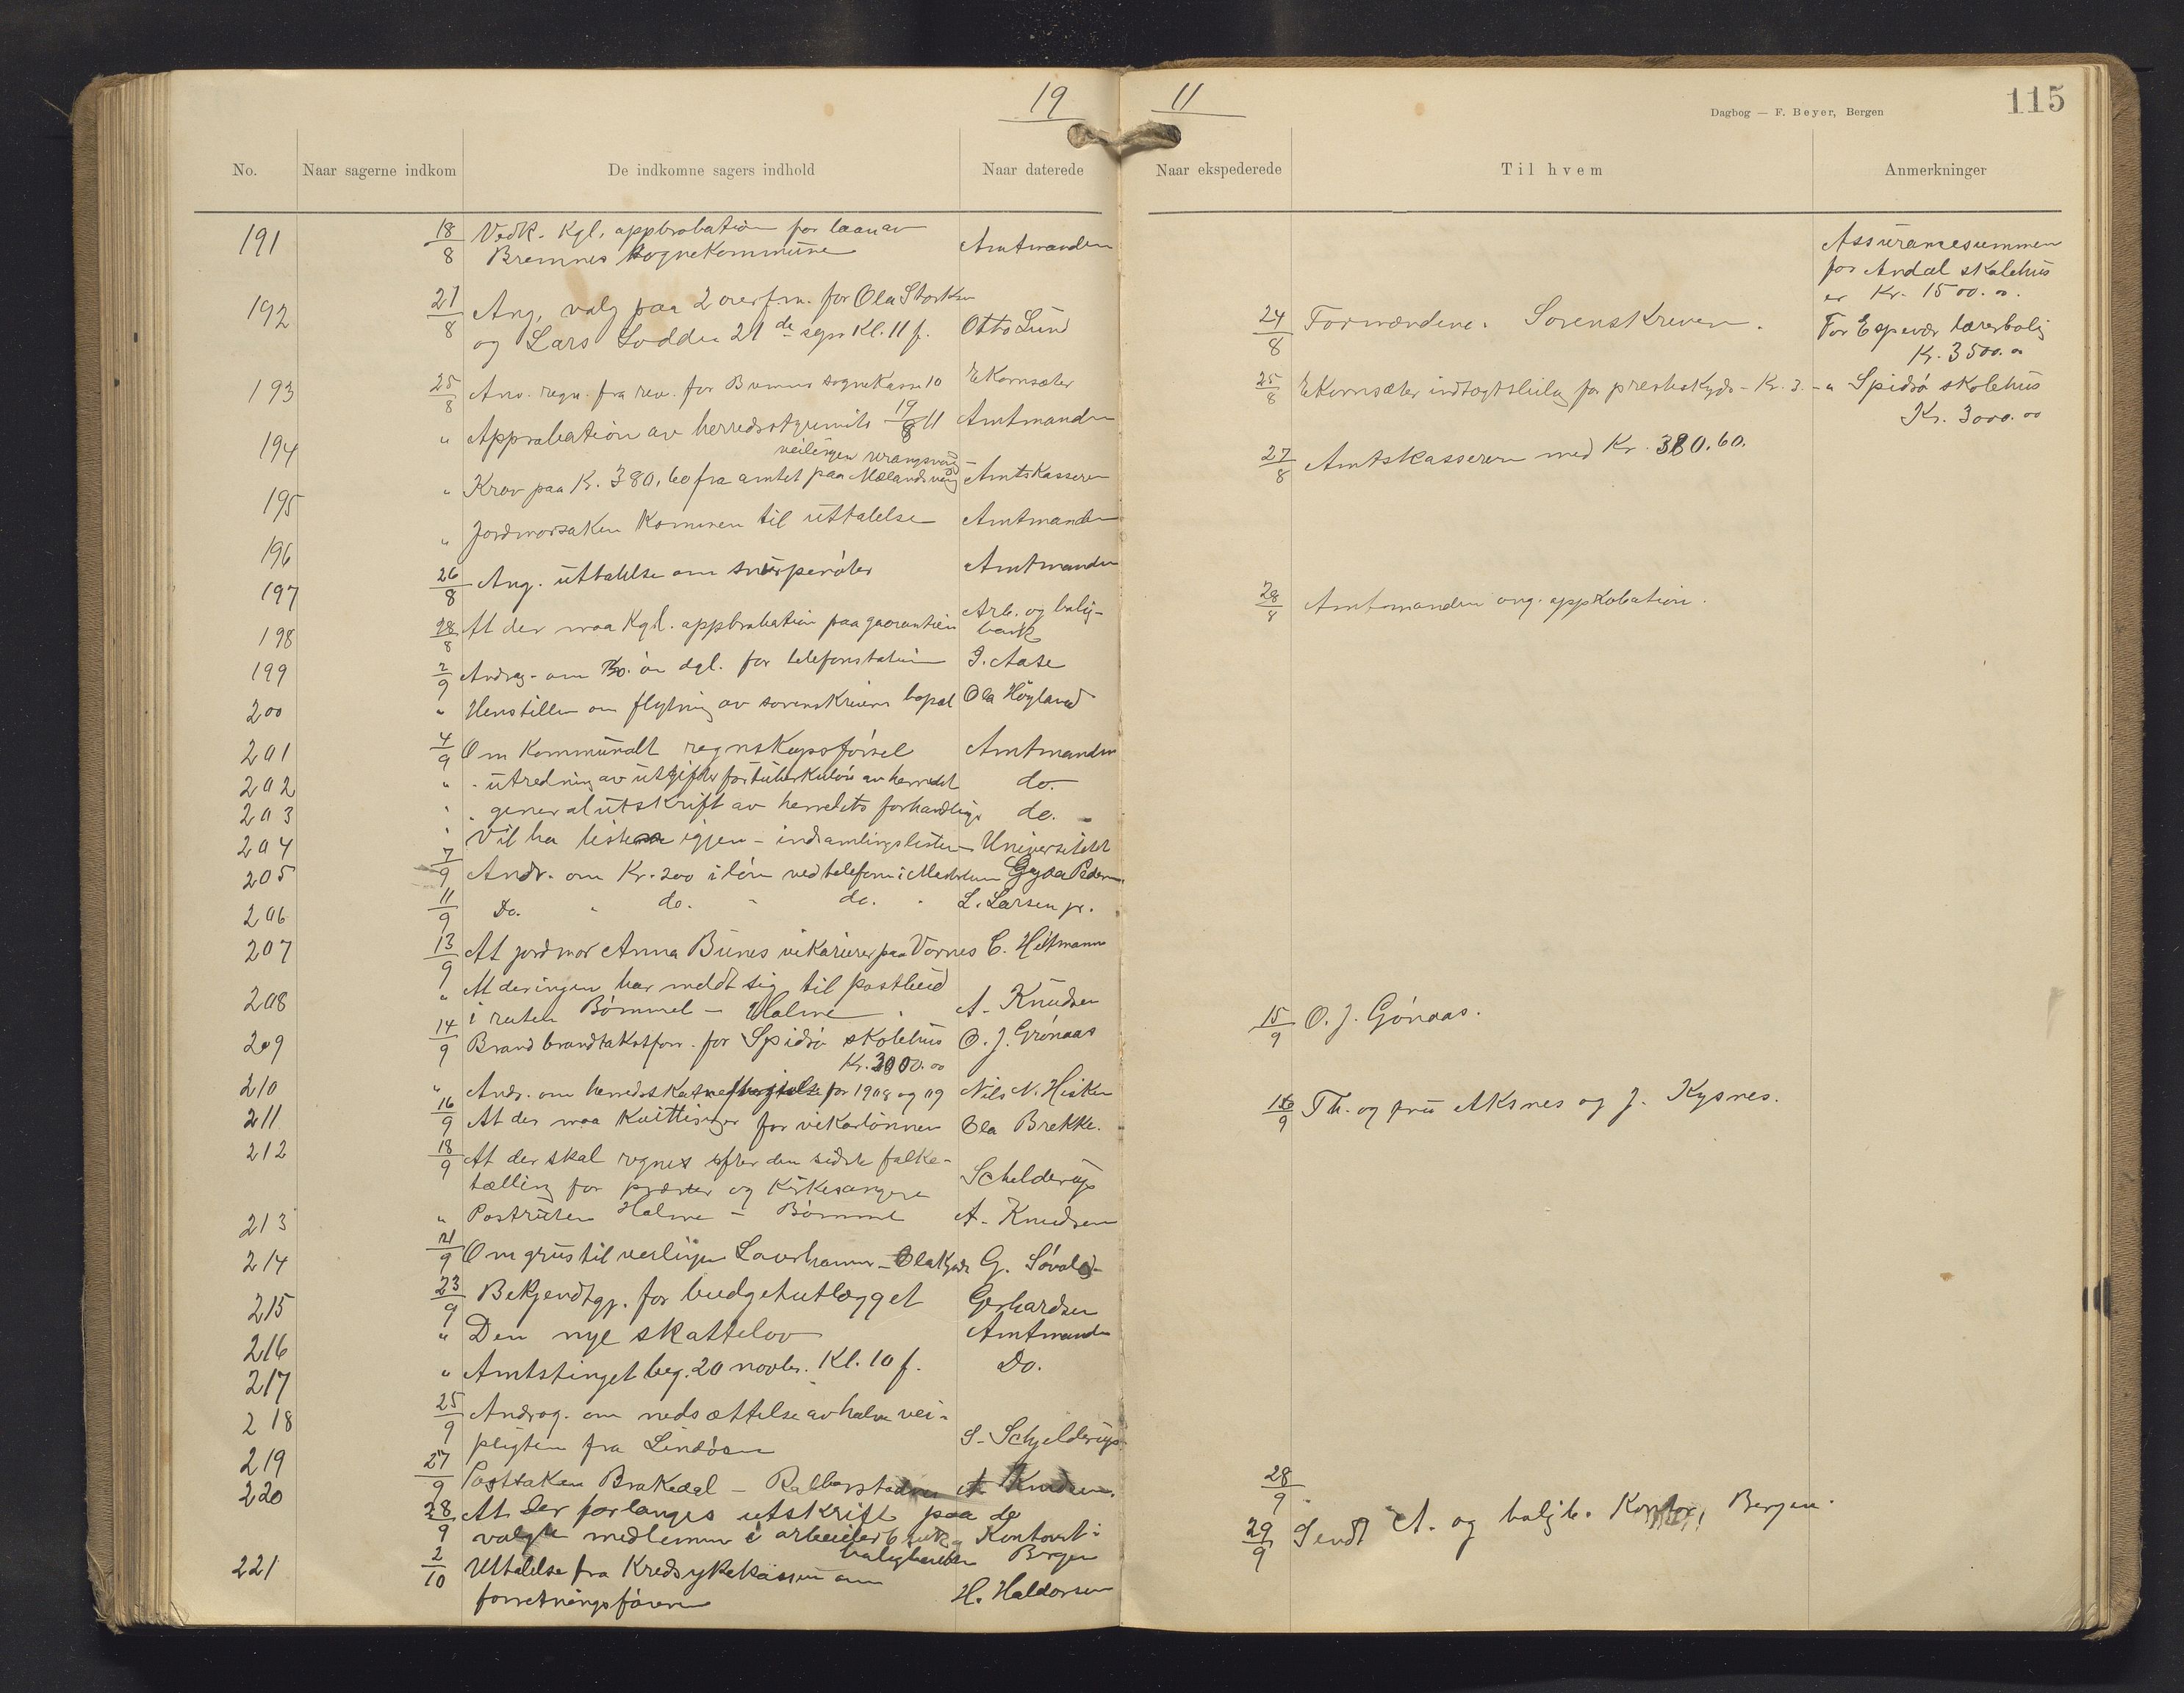 19 11
115
Dagbog — F. Beyer, Bergen
No. Naar sagerne indkom De indkomne sagers indhold Naar daterede Naar ekspederede Til hvem Anmerkninger
191 18/8 Vedk. Kgl. appbrobation for laan av
Bremnes sognekommune Amtmanden
192 21/8 Ang. valg paa 2 overf.m. for Ola Storken
og Lars Lodden 21de sepr Kl. 11 f. Otto Lund
193 25/8 Anv. regn. fra rev. for Bremnes sognekasse 10 E Kornsæter
194 " Approbation av herredsstyremøte 19/8 11 Amtmanden
veilinjen Vrangsvåg
195 " Krav paa Kr. 380,60 fra amtet paa Mælandsvåg - Amtskasseren
196 " Jordmorsaken kommen til uttalelse Amtmanden
197 26/8 Ang. uttalelse om snurpenøter Amtmanden
198 28/8 At der maa Kgl. appbrobation paa gaorantien Arb. og bolig-
bank
199 2/9 Andrag. om Kr. dgl. for telefonstation J. Aase
200 " Henstillen om flytning av sorenskriverns bopæl Ola Høyland
201 4/9 Om kommunalt regnskapsførsel Amtmanden
202 " - utredning av utgifter for tuberkuløse av herredet do.
203 " " generalutskrift av herredets forhandlinger do.
204 " Vil ha listene igjen - indsamlingslisten - Universitetet
205 7/9 Andr. om Kr. 200 i løn ved telefonen i Gyda Pedersen
206 11/9 Do. " do. " do. " L. Larsen jr.
207 13/9 At jordmor Anna Bunes vikarierer paa Vornes C. Heltmann
208 " At der ingen har meldt sig til postbud
i ruten Bømmel - Holme. A. Knudsen
209 14/9 Brand brandtakstforr. for Spidsø skolehus O. J. Grönaas
Kr. 3000.00
210 " Andr. om herredsskat for 1908 og 09 Nils N. Hisken
211 16/9 At der maa kvittinger for vikarlønnen Ola Brekke.
212 18/9 At der skal regnes efter den sidste folke-
tælling for præster og kirkesangere Schelderup
213 " Postruten Holme - Bømmel A. Knudsen
214 21/9 Om grus til veilinjen Laurhammer - Olakjær G. Søvold
215 23/9 Bekjendtgj. for budgetutlægget Gerhardsen
216 " Den nye skattelov Amtmanden
217 " Amtstinget beg. 20 novbr. Kl. 10 f. Do.
218 25/9 Androg. om nedsættelse av halve vei-
pligten fra Lindøen S. Schjelderup
219 27/9 Postsaken Brakedal - A. Knudsen.
220 28/9 At der forlanges utskrift paa de
valgte medlemmer i arbeiderbruk- Kontoret i
boligbanken Bergen
221 2/10 Uttalelse fra Kredssykekassen om
forretningsføreren H. Haldorsen
24/8 Formændene. Sorenskriveren.
25/8 E Kornsæter indtægtsbilag for presteskyds - Kr. 3. -
27/8 Amtskasseren med Kr. 380,60.
28/8 Amtmanden ang. appkobation.
15/9 O. J. Gönaas.
16/9 Th. og fru Aksnes og J. Kysnes.
28/9.
29/9 Sendt A. og boligb. Kontor, Bergen.
Assurancesummen
for Andal skolehus
er Kr. 1500.00.
For Espevær lærerbolig
Kr. 3500.00
" Spidsø skolehus
Kr. 3000.00